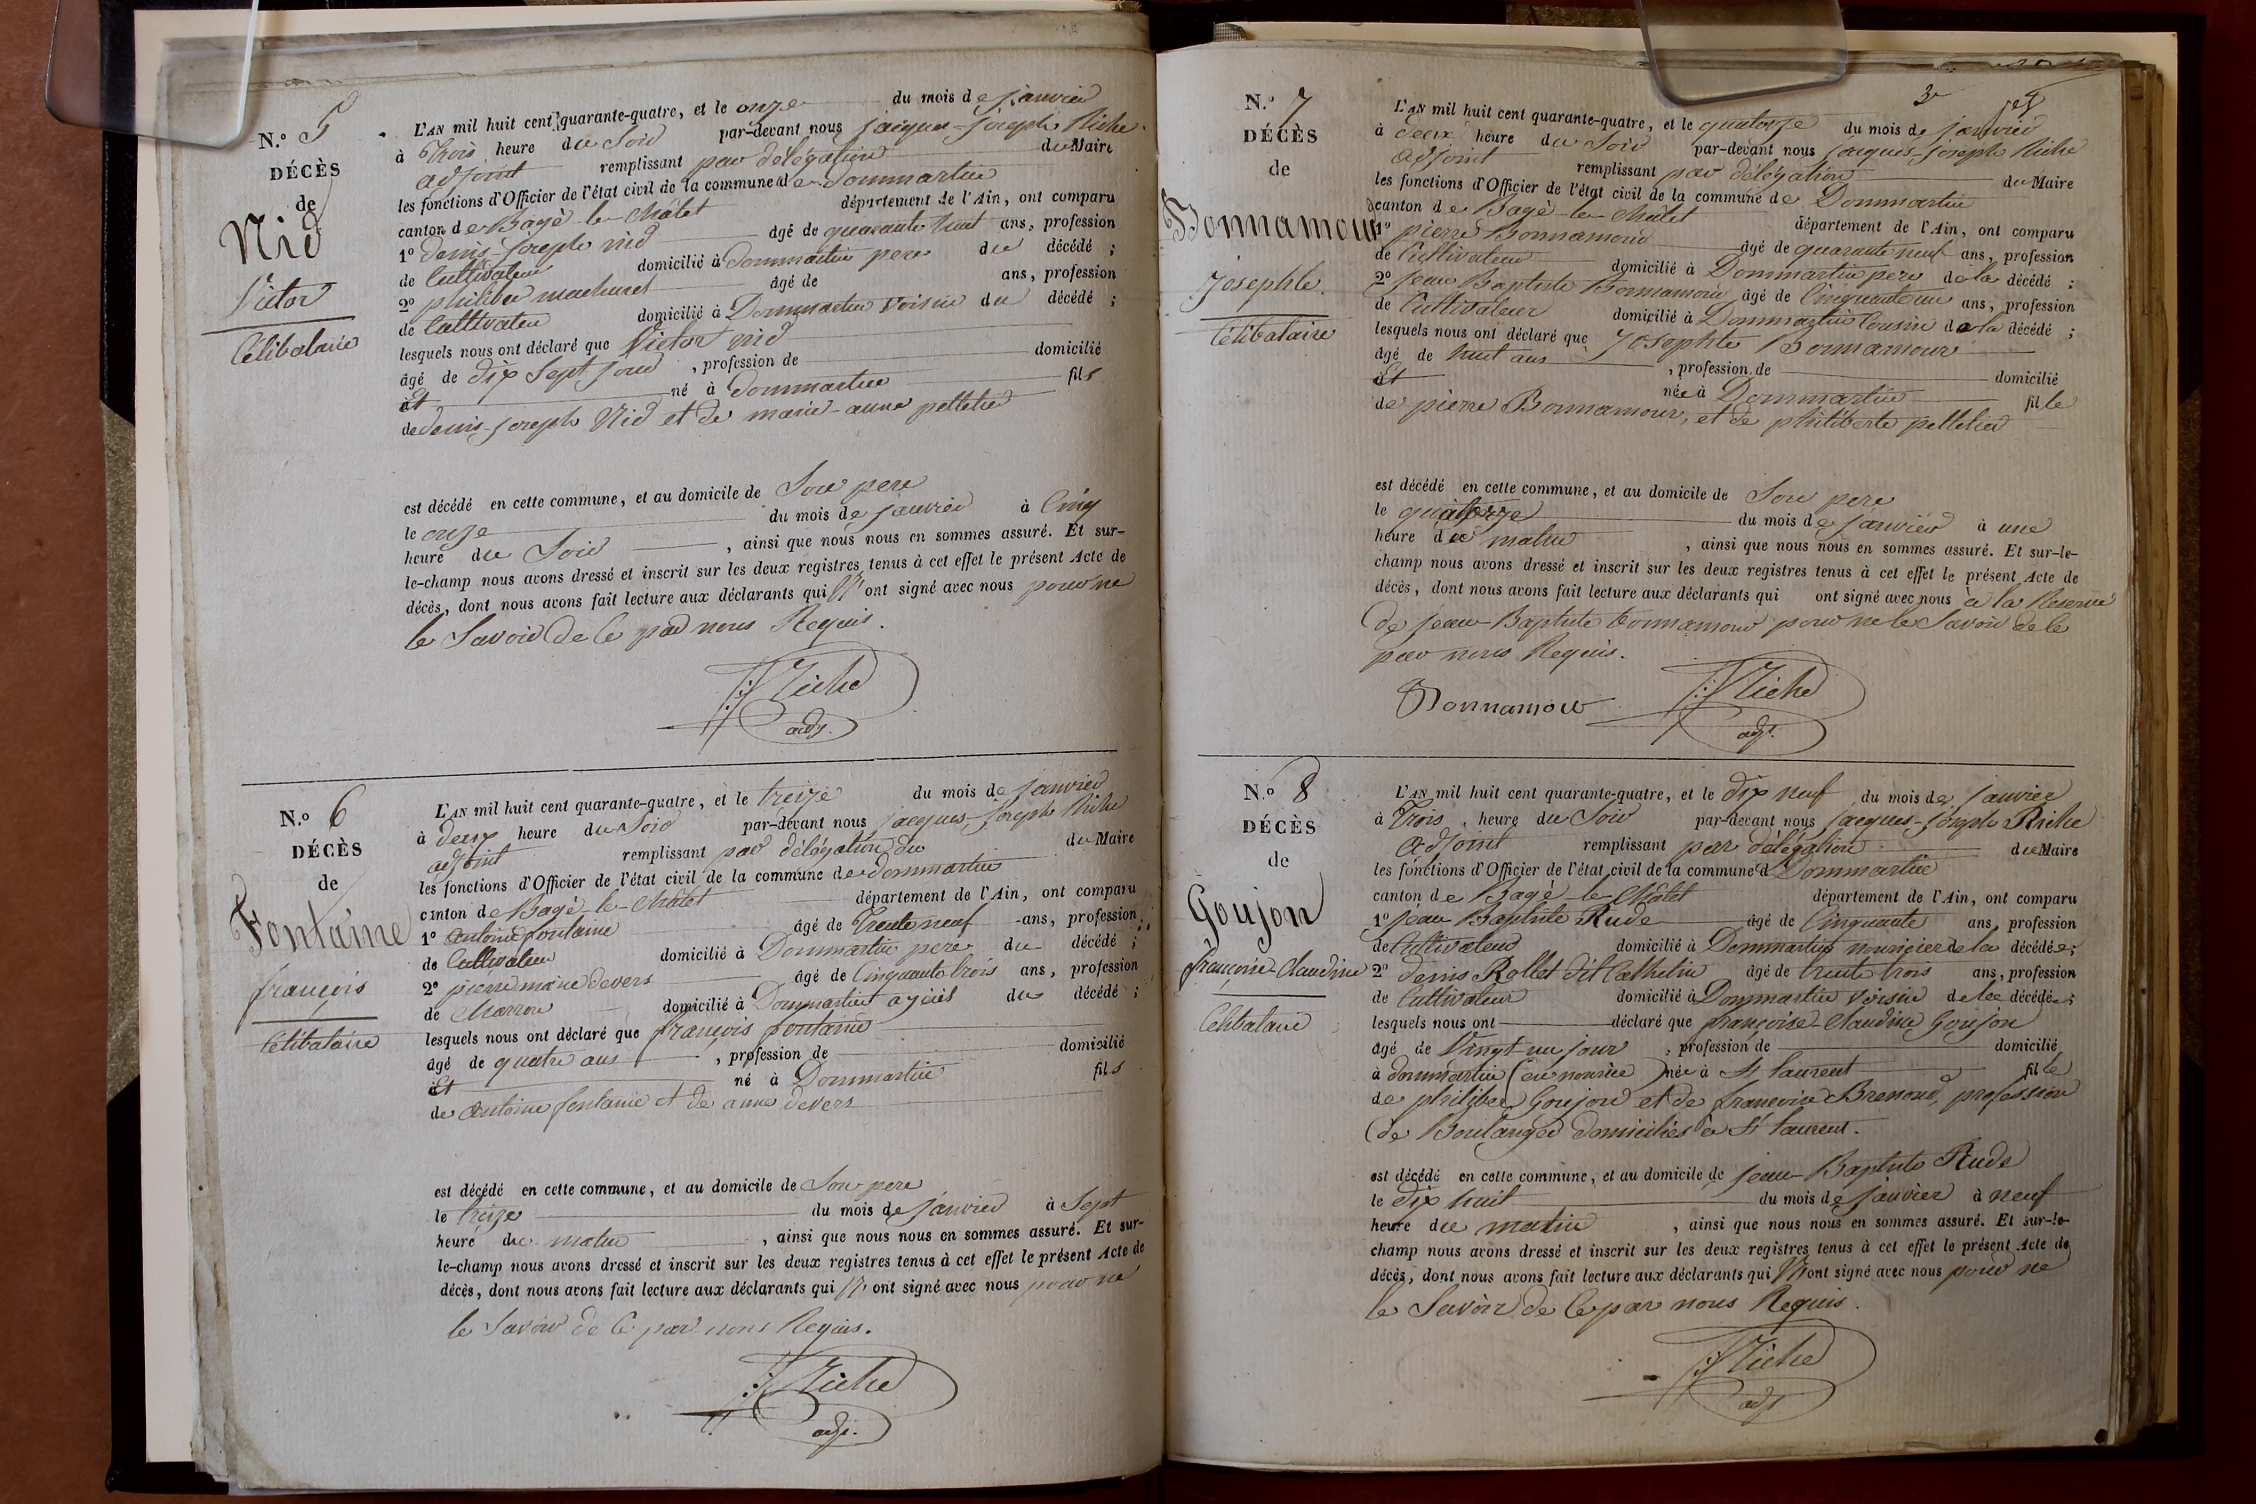 N.° 5
DÉCÈS
de
Nid
Victor
Célibataire
L'AN mil huit cent quarante-quatre, et le onze du mois de janvier
à trois heure du Soir par-devant nous jacques-joseph Riche
adjoint remplissant par délégation du Maire
les fonctions d'Officier de l'état civil de la commune de Dommartin
canton de Bagé-le-Châtel département de l'Ain, ont comparu
1° denis-joseph nid âgé de quarante huit ans, profession
de Cultivateur domicilié à Dommartin pere du décédé ;
2° philibert machuret âgé de ans, profession
de Cultivateur domicilié à Dommartin voisin du décédé ;
lesquels nous ont déclaré que Victor nid
âgé de dix Sept jour , profession de domicilié
à Et né à Dommartin fils
de denis-joseph Nid et de marie-anne pelletier
est décédé en cette commune, et au domicile de Son pere
le onze du mois de janvier à Cinq
heure du Soir , ainsi que nous nous en sommes assuré. Et sur-
le-champ nous avons dressé et inscrit sur les deux registres tenus à cet effet le présent Acte de
décès, dont nous avons fait lecture aux déclarants qui N'ont signé avec nous pour ne
le Savoir de Ce par nous Requis.
Riche
adj.
N.° 6
DÉCÈS
de
Fontaine
françois
Célibataire
L'AN mil huit cent quarante-quatre, et le treize du mois de janvier
à deux heure du Soir par-devant nous jacques-joseph Riche
adjoint remplissant par délégation du du Maire
les fonctions d'Officier de l'état civil de la commune de Dommartin
canton de Bagé-le-Châtel département de l'Ain, ont comparu
1° antoine fontaine âgé de Trente neuf ans, profession
de Cultivateur domicilié à Dommartin pere du décédé ;
2° pierre marie devers âgé de Cinquante trois ans, profession
de Charron domicilié à Dommartin ayeul du décédé ;
lesquels nous ont déclaré que françois fontaine
âgé de quatre ans , profession de domicilié
à Et né à Dommartin fils
de antoine fontaine et de anne devers
est décédé en cette commune, et au domicile de Son pere
le treize du mois de janvier à Sept
heure du matin , ainsi que nous nous en sommes assuré. Et sur-
le-champ nous avons dressé et inscrit sur les deux registres tenus à cet effet le présent Acte de
décès, dont nous avons fait lecture aux déclarants qui N'ont signé avec nous pour ne
le Savoir de Ce par nous Requis.
Riche
adj.
3e
N.° 7
DÉCÈS
de
Bonnamour
Josephte
Célibataire
L'AN mil huit cent quarante-quatre, et le quatorze du mois de janvier
à deux heure du Soir par-devant nous jacques-joseph Riche
adjoint remplissant par délégation du Maire
les fonctions d'Officier de l'état civil de la commune de Dommartin
canton de Bagé-le-Châtel département de l'Ain, ont comparu
1° pierre Bonnamour âgé de quarante neuf ans, profession
de Cultivateur domicilié à Dommartin pere de la décédé ;
2° jean Baptiste Bonnamour âgé de Cinquante un ans, profession
de Cultivateur domicilié à Dommartin Cousin de la décédé ;
lesquels nous ont déclaré que Josephte Bonnamour
âgé de huit ans , profession de domicilié
à Et née à Dommartin fille
de pierre Bonnamour, et de philiberte pelletier
est décédé en cette commune, et au domicile de Son pere
le quatorze du mois de janvier à une
heure du matin , ainsi que nous nous en sommes assuré. Et sur-le-
champ nous avons dressé et inscrit sur les deux registres tenus à cet effet le présent Acte de
décès, dont nous avons fait lecture aux déclarants qui ont signé avec nous à la Reserve
de jean-Baptiste Bonnamour pour ne le Savoir de Ce
par nous Requis.
Bonnamour
Riche
adj.
N.° 8
DÉCÈS
de
Goujon
françoise-Claudine
Célibataire
L'AN mil huit cent quarante-quatre, et le dix neuf du mois de janvier
à Trois heure du Soir par-devant nous jacques-joseph Riche
adjoint remplissant par délégation du Maire
les fonctions d'Officier de l'état civil de la commune d Dommartin
canton de Bagé-le-Châtel département de l'Ain, ont comparu
1° jean Baptiste Rude âgé de Cinquante ans, profession
de Cultivateur domicilié à Dommartin nouricier de la décédée ;
2° denis Rollet dit Cathelin âgé de trente trois ans, profession
de Cultivateur domicilié à Dommartin voisin de la décédée ;
lesquels nous ont déclaré que françoise-Claudine Goujon
âgé de Vingt-un jour , profession de domicilié
à dommartin (en nourice) née à St laurent fille
de philibert Goujon et de francoise Bremond, profession
de Boulanger domiciliés à St laurent.
est décédé en cette commune, et au domicile de jean-Baptiste Rude
le dix huit du mois de janvier à neuf
heure du matin , ainsi que nous nous en sommes assuré. Et sur-le-
champ nous avons dressé et inscrit sur les deux registres tenus à cet effet le présent Acte de
décès, dont nous avons fait lecture aux déclarants qui N'ont signé avec nous pour ne
le Savoir de Ce par nous Requis.
Riche
adj